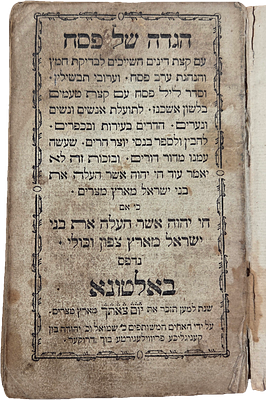 הגדה של פסח
עם קצת דינים השייכים לבדיקת חמץ
והנהגת ערב פסח · וערובי תבשילין ·
וסדר ליל פסח עם קצרת טעמים
בלשון אשכנז · לתועלת אנשים ונשים
ונערים · הדרים בעירות ובכפרים ·
להבין ולספר בנסי יוצר הרים · שעשה
עמנו מדור דורים · ובזכות זה לא
יאמר עוד חי יהוה אשר העלה את
בני ישראל מארץ מצרים ·
כי אם
חי יהוה אשר העלה את בני
ישראל מארץ צפון וכולי ·
נדפס
באלטונא
שנת למען תזכר את יום צאתך מארץ מצרים ·
על ידי האחים המשותפים כ׳ שמואל וכ׳ יהודה בון
קעניגליכע פריווילעגירטע בוך דרוקער ·